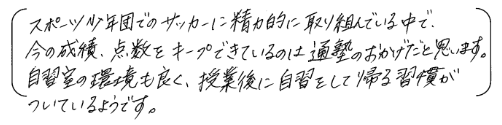 スポーツ少年団でのサッカーに精力的に取り組んでいる中で、
今の成績、点数をキープできているのは通塾のおかげだと思います。
自習室の環境も良く、授業後に自習をして帰る習慣が
ついているようです。